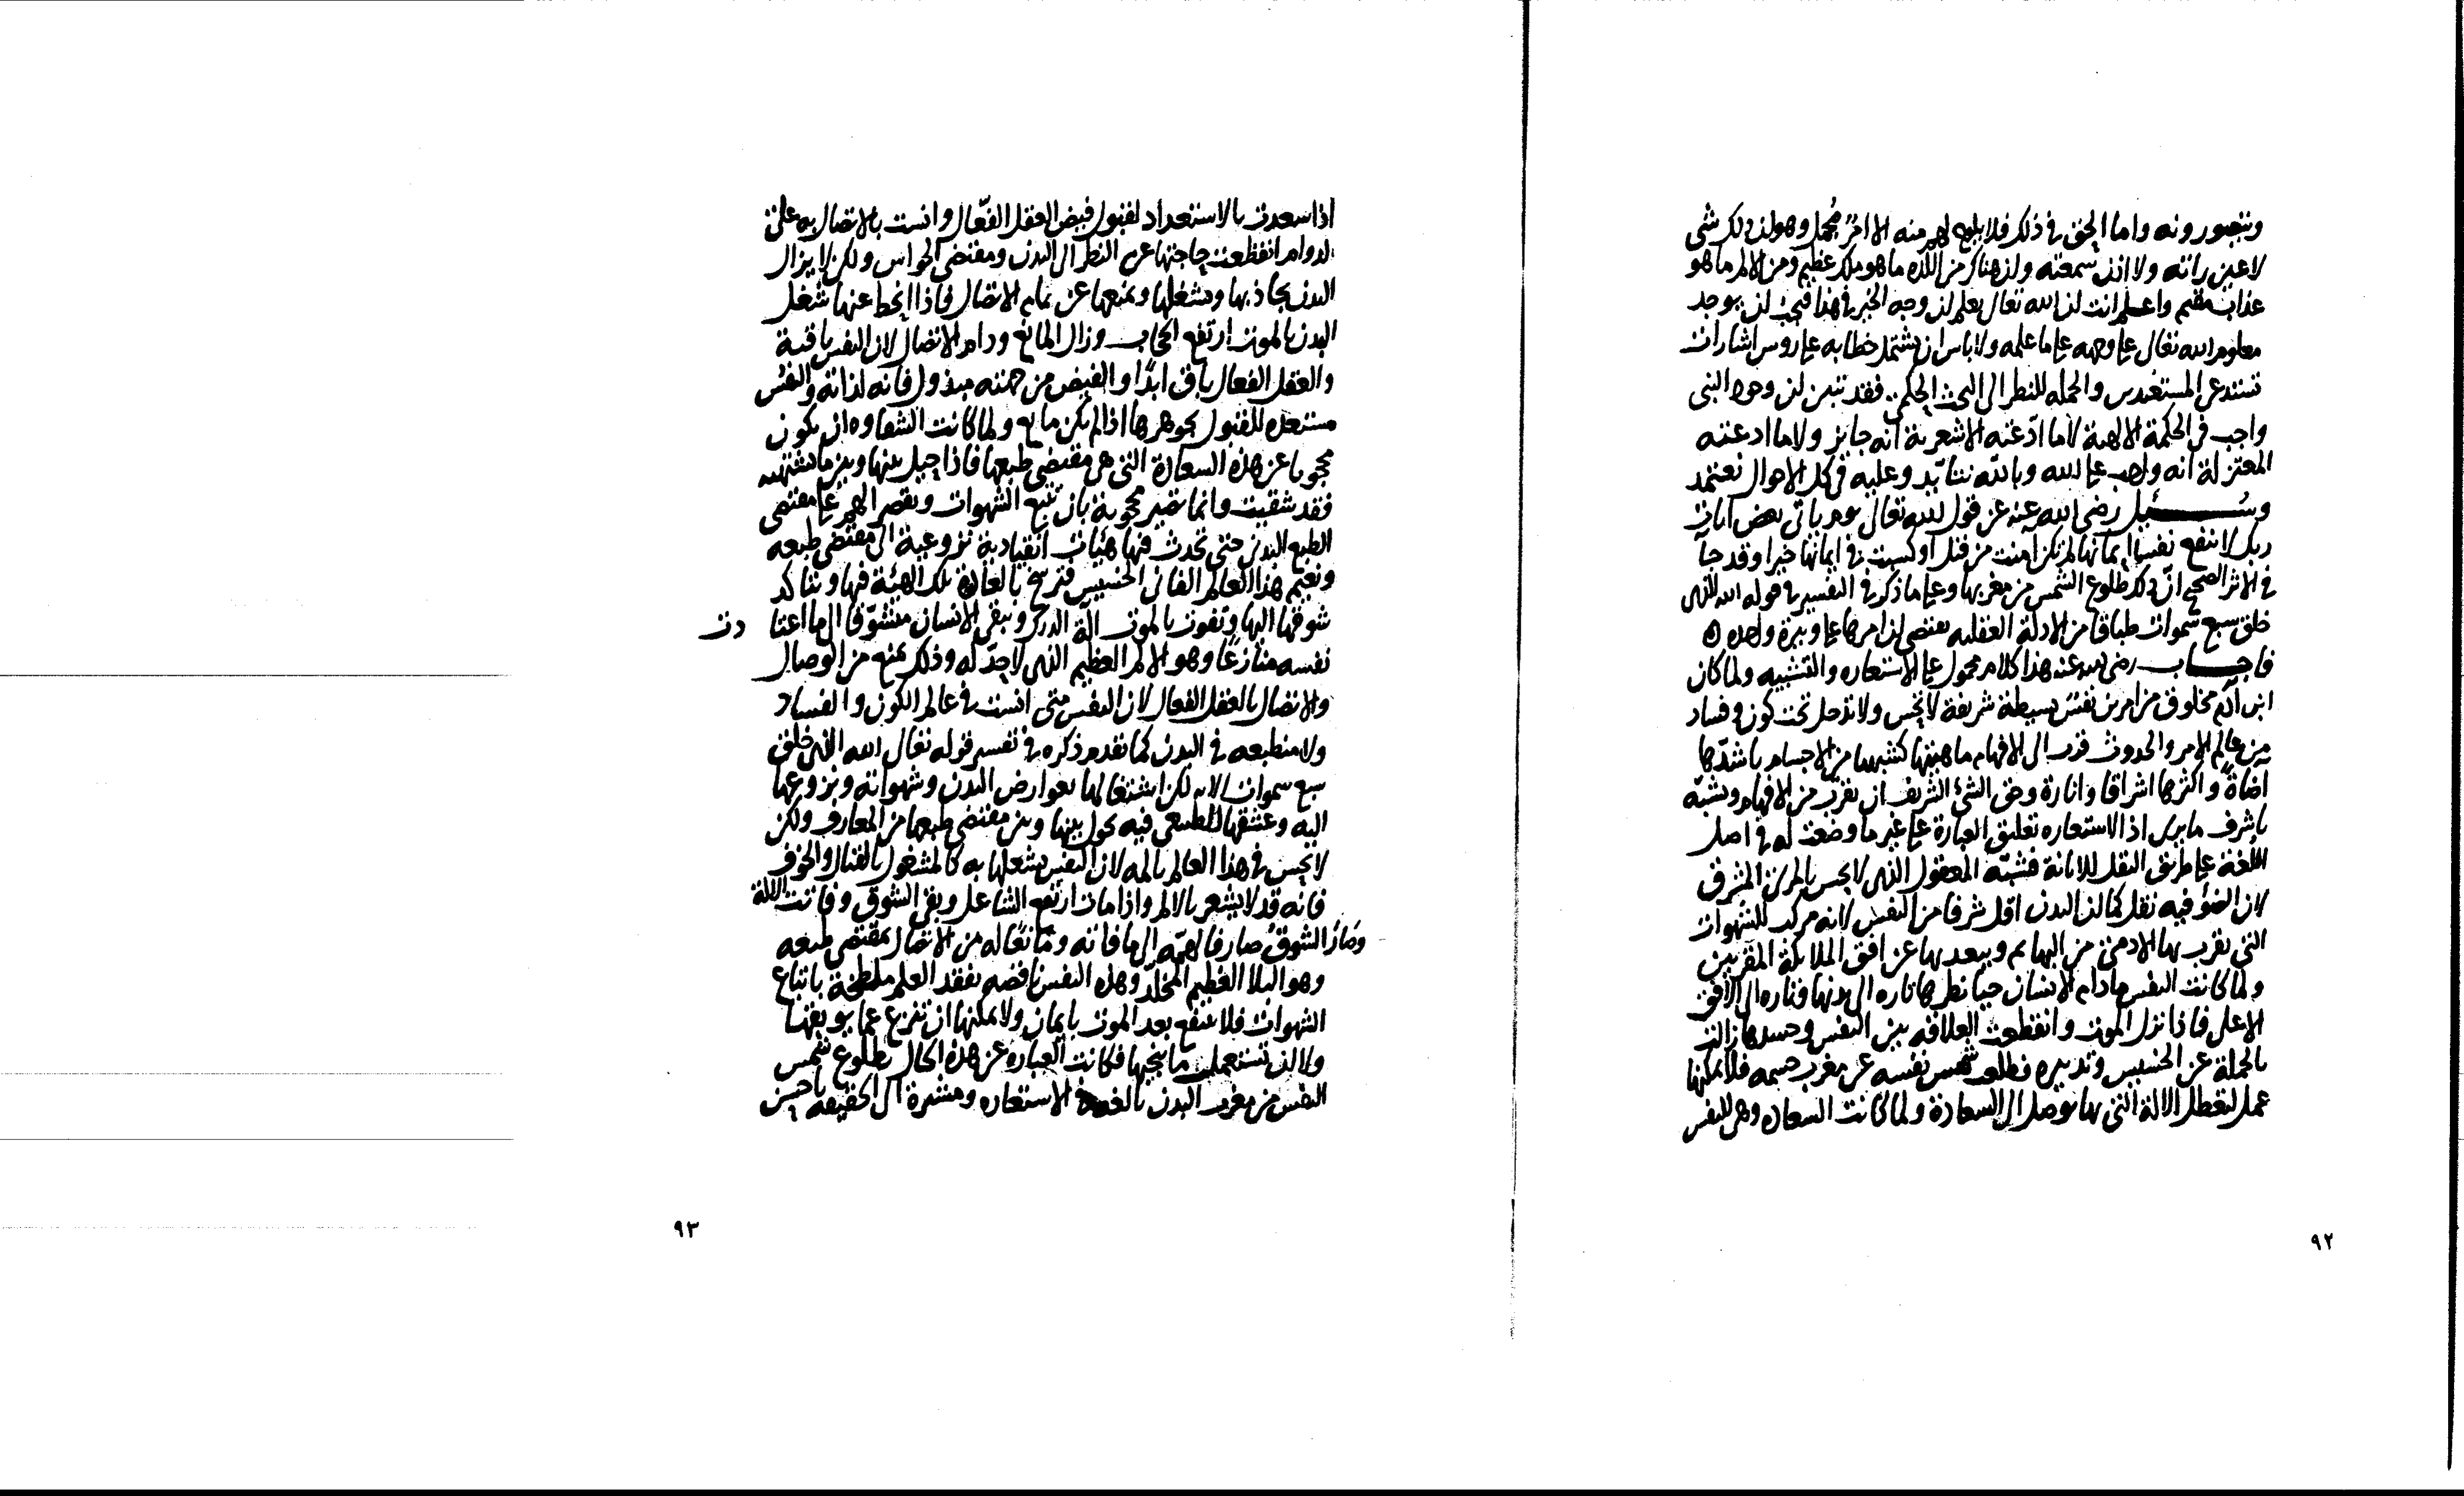 ويتصورونه واما الحق في ذلك فلا يلوح لهم منه الا امرٌ مُجمل وهو ان ذلك شي
لا عين راته ولا اذن سمعته وان هناك من اللذه ما هو ملك عظيم ومن الالم ما هو
عذاب مقيم واعلم انت ان الله تعالى يعلم ان وجه الخير في هذا فيجب ان يوجد
معلوم الله تعالى على وجهه على ما علمه ولا باس ان يشتمل خطابه على رموز اشارات
تستدعي المستعدين والجبله للنظر الى البحث الحكمي فقد تبين ان وجود النبي
واجب في الحكمة الالهية لا ما ادّعته الاشعرية انه جايز ولا ما ادعته
المعتزلة انه واجب على الله وبالله نتايّد وعليه في كل الاحوال نعتمد
وسُئِل رضي الله عنه عن قول الله تعالى يوم ياتي بعض آيات
ربك لا ينفع نفسا ايمانها لم تكن آمنت من قبل او كسبت في ايمانها خيرا وقد جآ
في الاثر الصحيح انّ ذلك طلوع الشمس من مغربها وعلى ما ذكر في التفسير في قوله الله الذي
خلق سبع سموات طباقا من الادلة العقليه يقتضي ان امرها على وتيرة واحده
فاجاب رضي الله عنه هذا كلام محمول على الاستعاره والتشبيه ولما كان
ابن آدم مخلوق من امرين نفس بسيطة شريفة لا تحس ولا تدخل تحت كون وفساد
من عالم الامر والحدوث قرب الى الافهام ماهيتها كتشبيهها من الاجسام باشدّها
اضاةً واكثرها اشراقا وانارة وحق الشئ الشريف ان يقرّب من الافهام ويشبّه
باشرف ما يرى اذ الاستعاره تعليق العبارة على غير ما وضعت له في اصل
اللغة على طريق النقل للابانة فشبّه المعقول الذي لا يحس بالمرئ المشرق
لان الضوء فيه نقل كما ان البدن اقل شرفا من النفس لانه مركب للشهوات
التي يقرب بها الادمي من البهايم ويبعد بها عن افق الملائكة المقربين
ولما كانت النفس ما دام الانسان حيا نظرها تاره الى بدنها وتاره الى الافق
الاعلى فاذا نزل الموت وانقطعت العلاقه بين النفس وجسدها زالت
بالجملة عن الخسيس وتدبيره فطلعت شمس نفسه عن مغرب جسمه فلا يمكنها
عمل لتعطل الالة التي بها توصل الى السعادة ولما كانت السعاده وهي للنفس
٩٢
اذا سعدت بالاستعداد لقبول فيض العقل الفعّال وانست بالاتصال به على
الدوام انقطعت حاجتها عن النظر الى البدن ومقتضى الحواس ولكن لا يزال
البدن يجاذبها ويشغلها ويمنعها عن تمام الاتصال فاذا انحط عنها شغل
البدن بالموت ارتفع الحجاب وزال المانع ودام الاتصال لان النفس باقية
والعقل الفعال باق ابدًا والفيض من جهته مبذول فانه لذاته والنفس
مستعده للقبول بجوهرها اذا لم يكن مانع ولما كانت الشقاوه ان يكون
محجوبا عن هذه السعادة التي هي مقتضى طبعها فاذا حيل بينها وبين ما تشتهيه
فقد شقيت وانما تصير محجوبة بان تتبع الشهوات وتقصر الهمّ على مقتضى
الطبع البدني حتى تحدث فيها هيئات انقيادية نزوعية الى مقتضى طبعه
ونعيم هذا العالم الفاني الخسيس فترسخ بالعادة تلك الهيئة فيها ويتاكد
شوقها اليها وتفوت بالموت آلة الدرك ويبقى الانسان متشوّقا الى ما اعتادت
نفسه منازعًا وهو الالم العظيم الذي لا حدّ له وذلك يمنع من الوصال
والاتصال بالعقل الفعال لان النفس متى انست في عالم الكون والفساد
ولا منطبعه في البدن كما تقدم ذكره في تفسير قوله تعالى الله الذي خلق
سبع سموات الايه لكن اشتغالها بعوارض البدن وشهواته ونزوعها
اليه وعشقها الطبيعي فيه يحول بينها وبين مقتضى طبعها من المعارف ولكن
لا يحس في هذا العالم بالمه لان النفس يشغلها به كالمشغول بالقتال والخوف
فانه قد لا يشعر بالالم واذا مات ارتفع الشاغل وبقي الشوق وفاتت اللآلة
وصار الشوق صارفا لهمّه الى ما فاته ومانعًا له من الاتصال بمقتضى طبعه
وهو البلا العظيم المخلّد وهذه النفس ناقصه بفقد العلم ملطخة باتباع
الشهوات فلا ينتفع بعد الموت بايمان ولا يمكنها ان تنزع عما يوبقها
ولا ان تستعمل ما ينجيها فكانت العباره عن هذه الحال بطلوع شمس
النفس من مغرب البدن بالغة في الاستعاره ومشيرة الى الحقيقه باحسن
٩٣